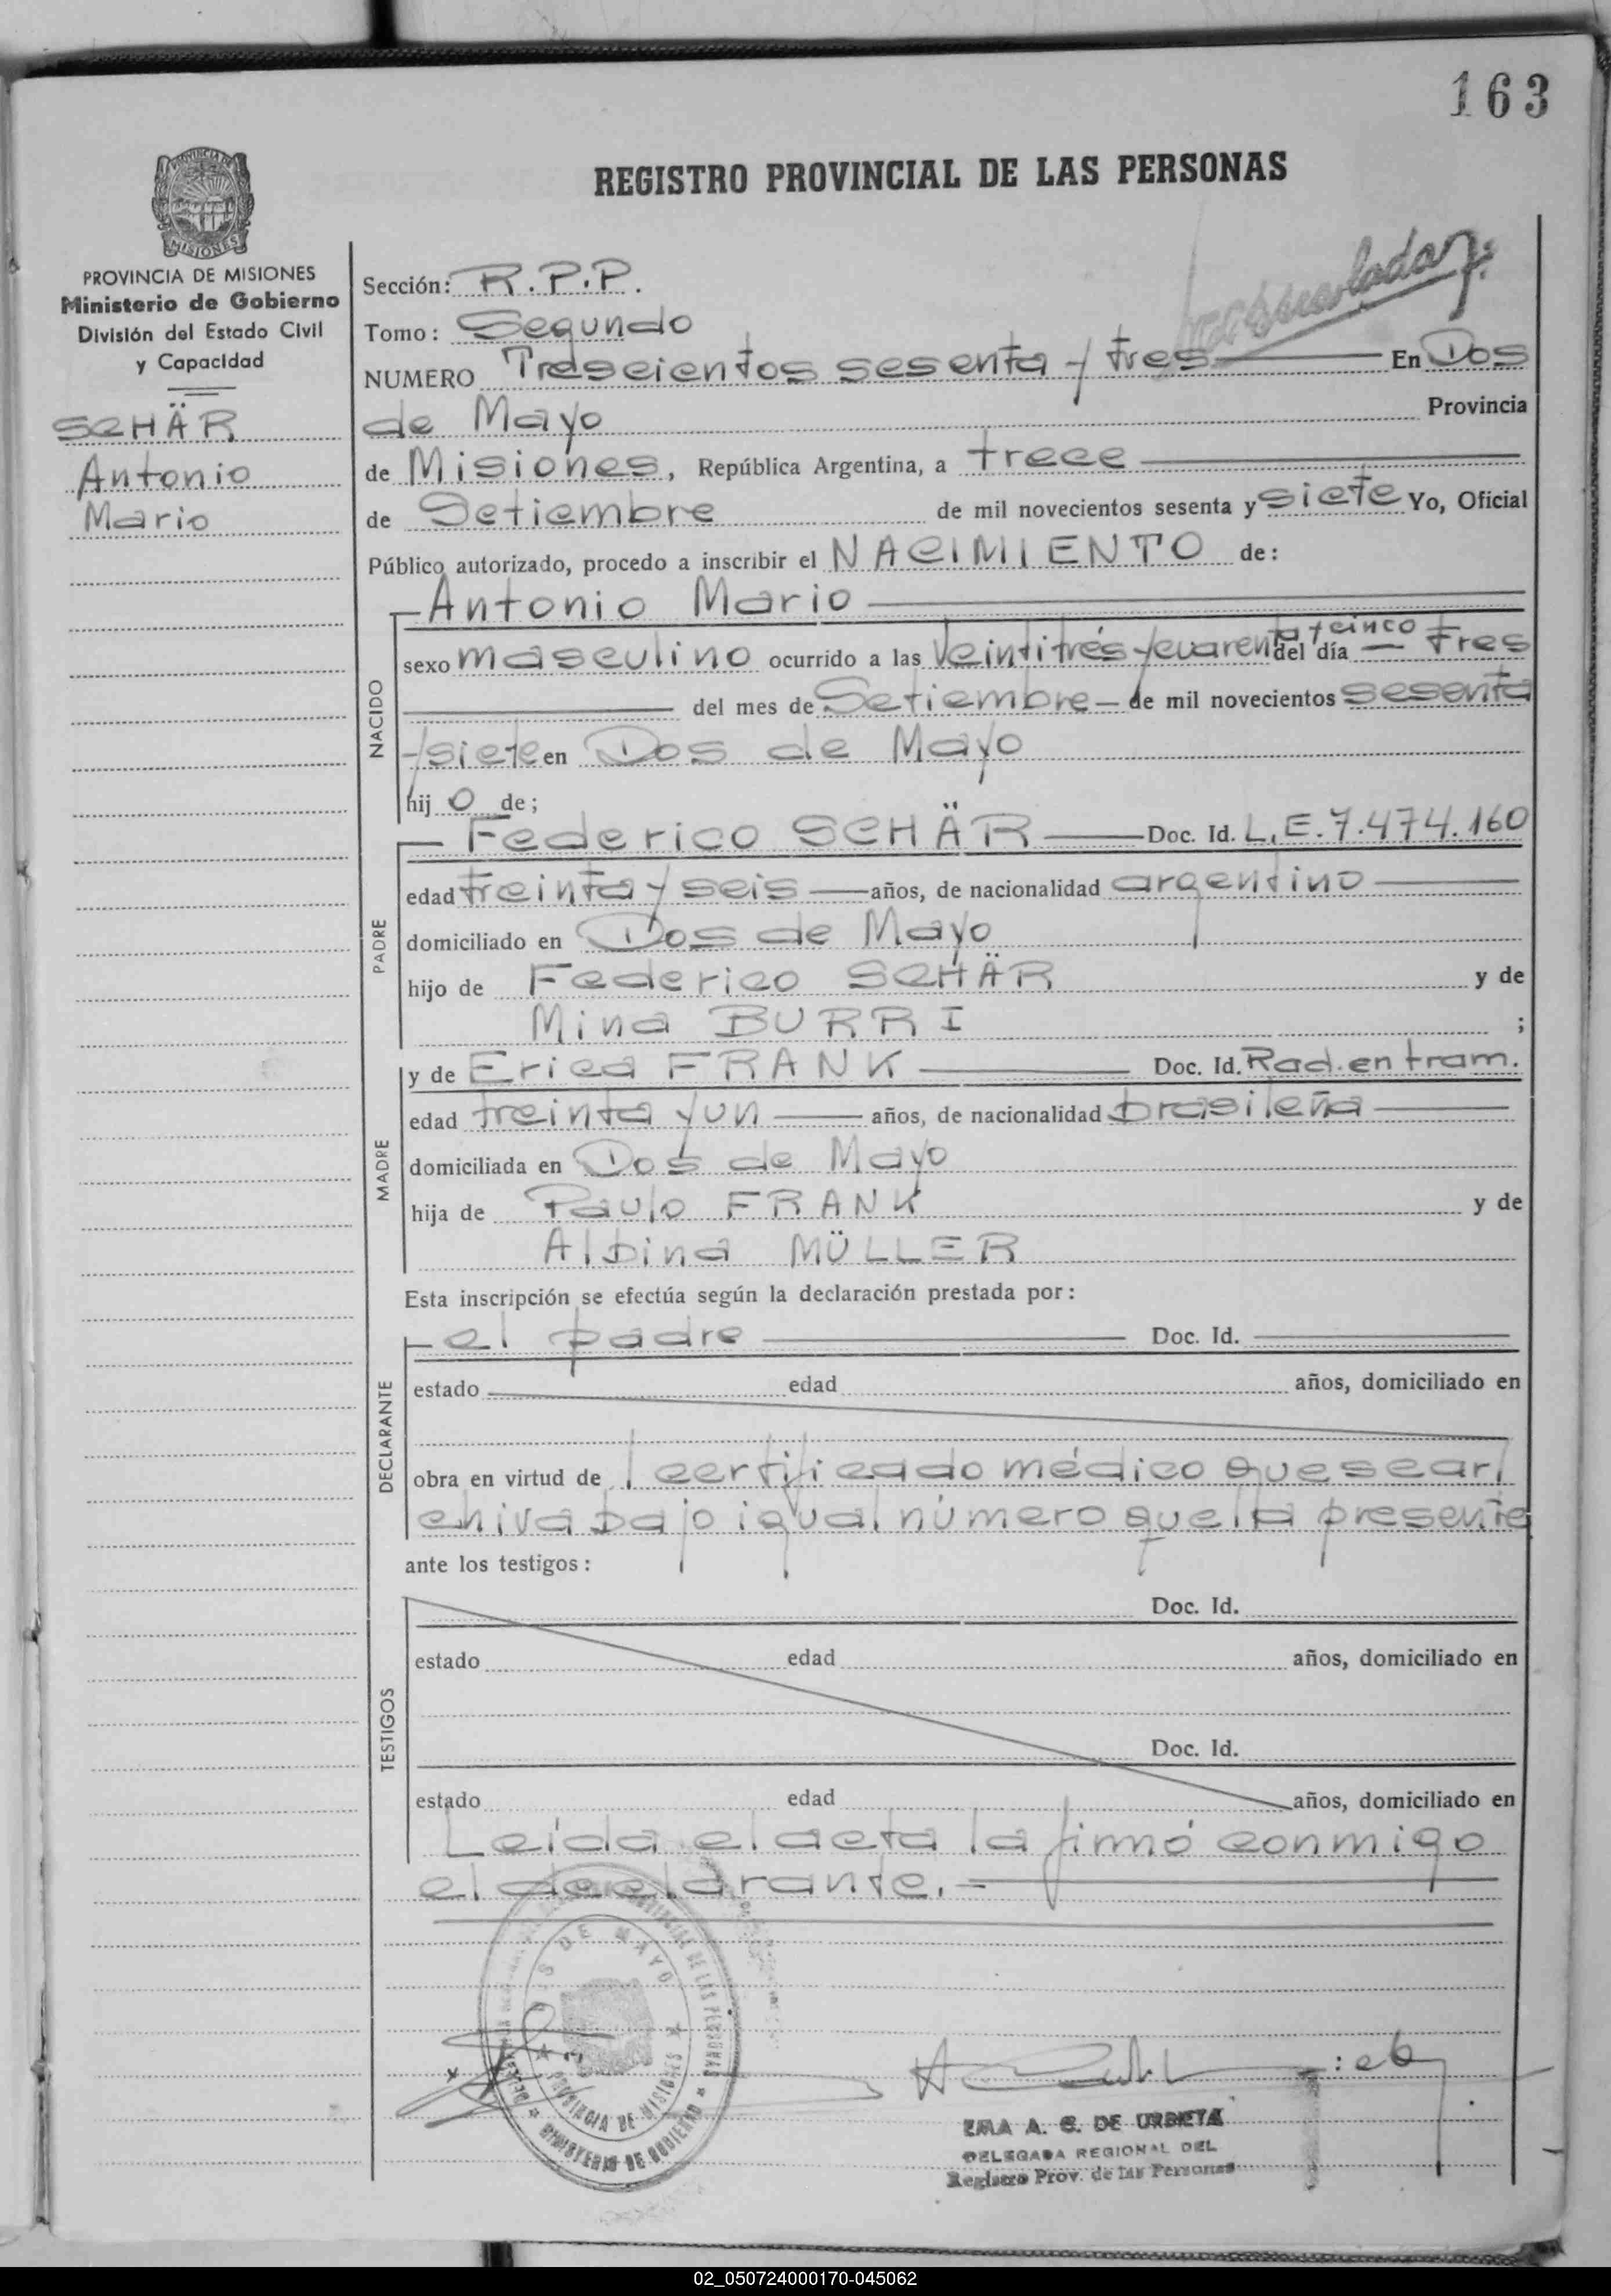 163
REGISTRO PROVINCIAL DE LAS PERSONAS
PROVINCIA DE MISIONES
Ministerio de Gobierno
División del Estado Civil
y Capacidad
SCHÄR
Antonio
Mario
Sección: R.P.P.
Tomo: Segundo
NUMERO Trescientos sesenta y tres En Dos
de Mayo Provincia
de Misiones, República Argentina, a trece
de Setiembre de mil novecientos sesenta y siete Yo, Oficial
Público autorizado, procedo a inscribir el NACIMIENTO de:
Antonio Mario
NACIDO
sexo masculino ocurrido a las Veintitrés y cuarenta y cinco del día tres
del mes de Setiembre de mil novecientos sesenta
y siete en Dos de Mayo
hij o de;
PADRE
Federico SCHÄR Doc. Id. L.E. 7.474.160
edad treinta y seis años, de nacionalidad argentino
domiciliado en Dos de Mayo
hijo de Federico SCHÄR y de
Mina BURRI ;
MADRE
y de Erica FRANK Doc. Id. Rad. en tram.
edad treinta y un años, de nacionalidad brasileña
domiciliada en Dos de Mayo
hija de Paulo FRANK y de
Albina MÜLLER
Esta inscripción se efectúa según la declaración prestada por:
DECLARANTE
el padre Doc. Id.
estado edad años, domiciliado en
obra en virtud de l certificado médico que se ar/
chiva bajo igual número que la presente
ante los testigos:
TESTIGOS
Doc. Id.
estado edad años, domiciliado en
Doc. Id.
estado edad años, domiciliado en
Leída el acta la firmó conmigo
el declarante.-
DOS DE MAYO
PROVINCIA DE MISIONES
MINISTERIO DE GOBIERNO
EMA A. G. DE URBIETA
DELEGADA REGIONAL DEL
Registro Prov. de las Personas
02_050724000170-045062